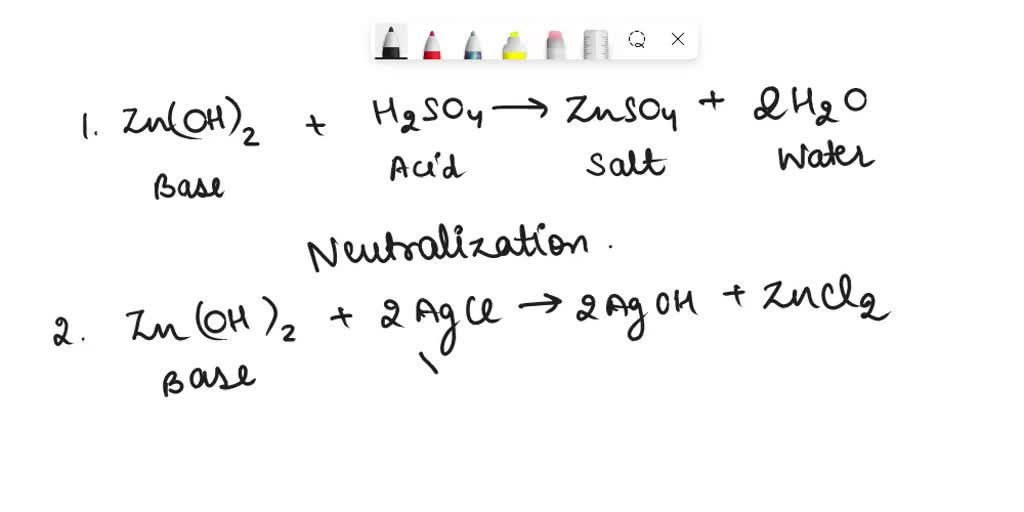 1. Zn(OH)2 + H2SO4 → ZnSO4 + 2H2O
Base Acid Salt Water
Neutralization.
2. Zn(OH)2 + 2AgCl → 2AgOH + ZnCl2
Base